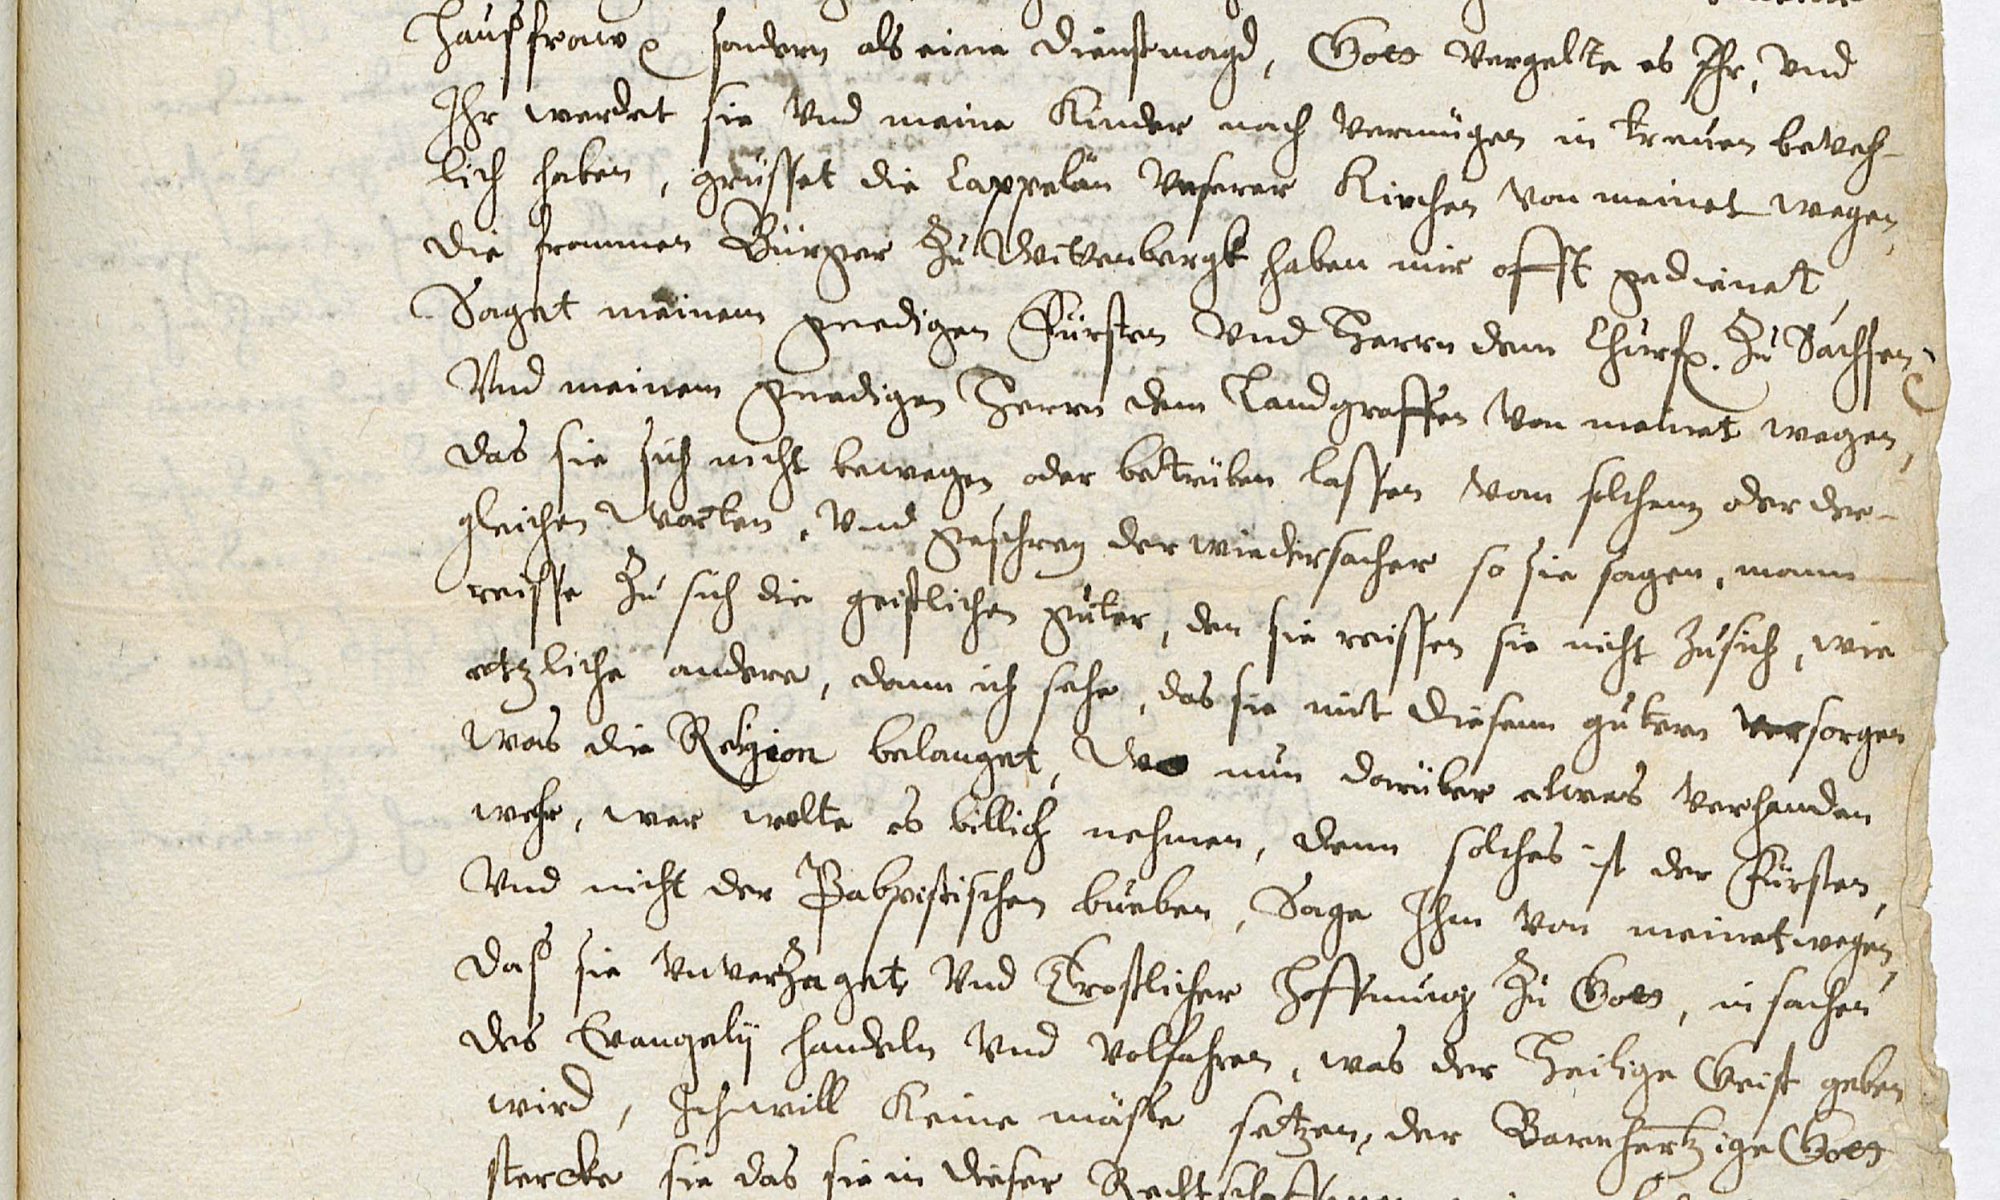 Haußfraw, sondern als eine dienstmagd, Gott vergelte es Ihr, vnd
Ihr werdet sie vnd meine Kinder nach vermügen in treuen beveh-
lich haben, grüsset die Cappelän vnserer Kirchen von meinet wegen,
die frommen Bürger zu Wittenbergk haben mir offt gedienet,
Saget meinem gnedigen Fürsten vnd Herrn dem Churf. zu Sachsen,
Vnd meinem gnedigen Herrn dem Landgraffen von meinet wegen,
das sie sich nicht bewegen oder betrüben lassen von solchenn oder der-
gleichen Worten, vnd geschrey der wiedersacher so sie sagen, mann
reisse zu sich die geistlichen güter, den sie reissen sie nicht zu sich, wie
etzliche andere, dann ich sehe, das sie mit diesenn gütern versorgen
was die Religion belanget, Wo nun darüber etwas verhanden
wehr, wer wolte es billich nehmen, denn solches ist der Fürsten,
Vnd nicht der Pabpistischen bueben, Sage Ihm von meinetwegen,
daß sie vnverzaget vnd Trostlicher Hoffnung zu Gott, in sachen
des Evangelij handeln vnd volfahren, was der Heilige Geist geben
wird, Ich will Keine mäße setzen, der Barmhertzige Gott
stercke sie das sie in dieser